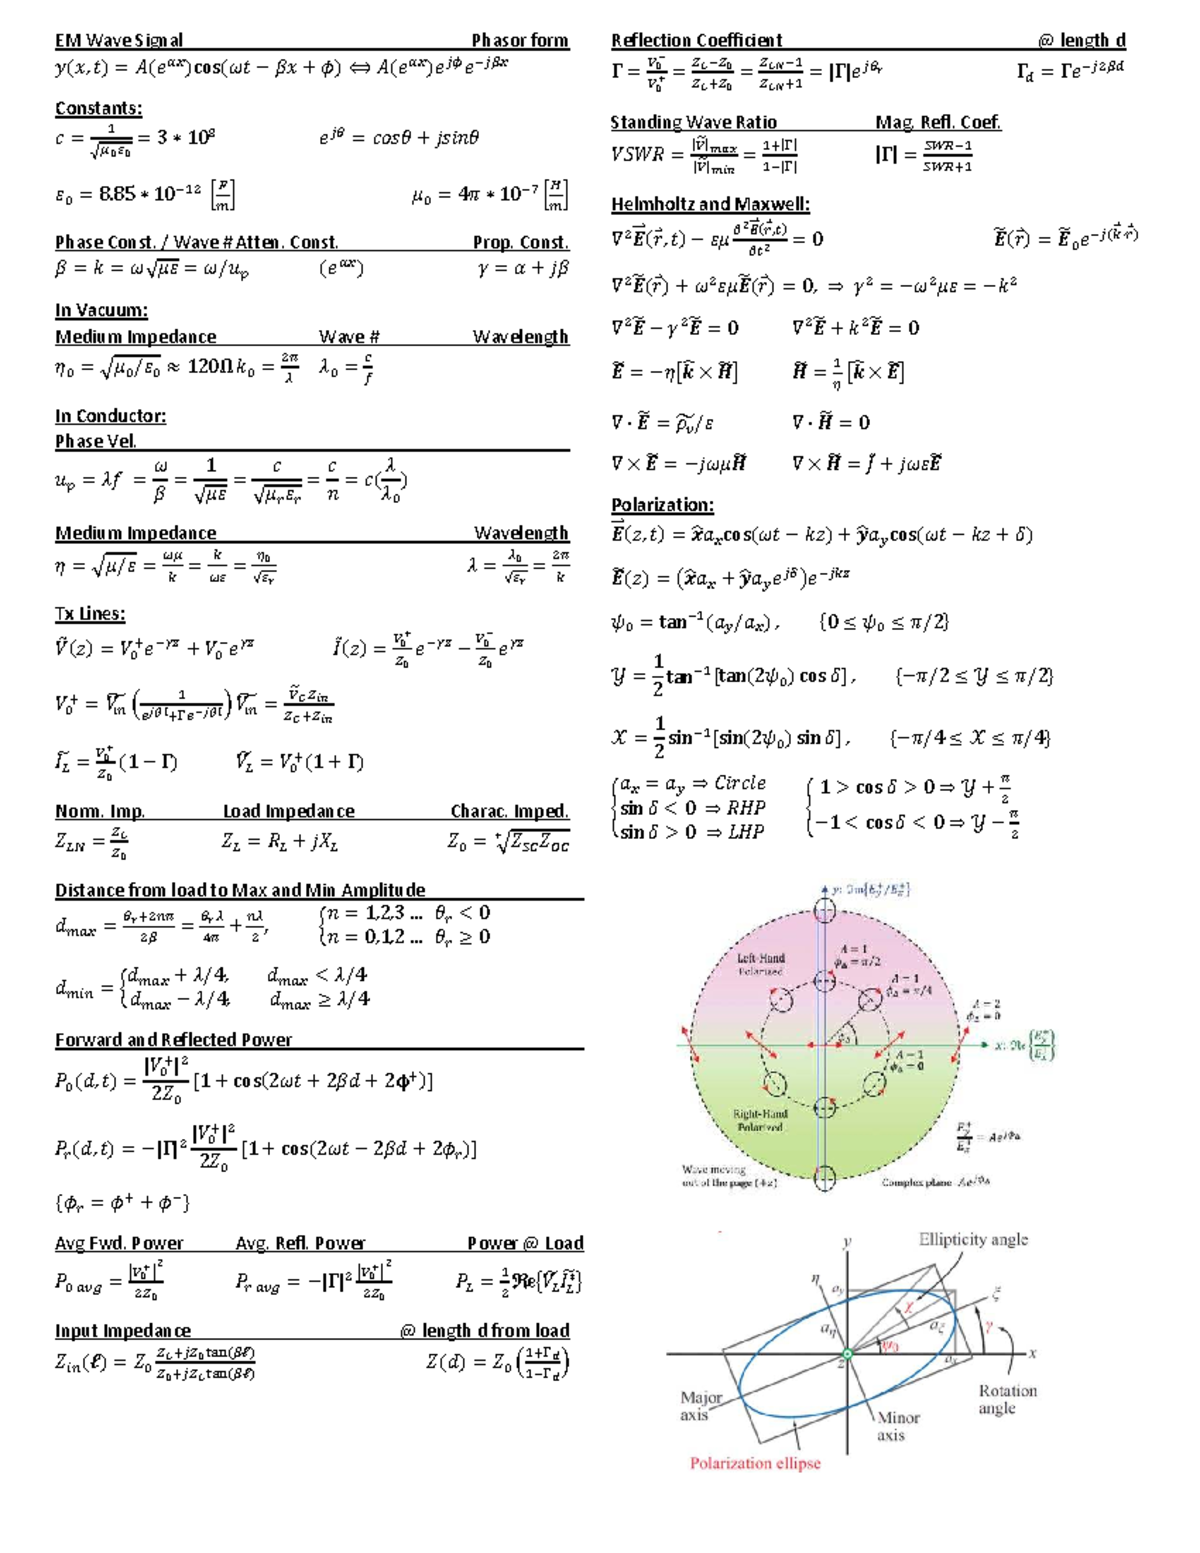 EM Wave Signal Phasor form
y(x,t) = A(e^{αx})cos(ωt − βx + ϕ) ⟺ A(e^{αx})e^{jϕ}e^{−jβx}
Constants:
c = 1/√(μ₀ε₀) = 3 ∗ 10⁸ e^{jθ} = cosθ + jsinθ
ε₀ = 8.85 ∗ 10^{−12} [F/m] μ₀ = 4π ∗ 10^{−7} [H/m]
Phase Const. / Wave # Atten. Const. Prop. Const.
β = k = ω√(με) = ω/u_p (e^{αx}) γ = α + jβ
In Vacuum:
Medium Impedance Wave # Wavelength
η₀ = √(μ₀/ε₀) ≈ 120Ω k₀ = 2π/λ λ₀ = c/f
In Conductor:
Phase Vel.
u_p = λf = ω/β = 1/√(με) = c/√(μ_rε_r) = c/n = c(λ/λ₀)
Medium Impedance Wavelength
η = √(μ/ε) = ωμ/k = k/ωε = η₀/√ε_r λ = λ₀/√ε_r = 2π/k
Tx Lines:
Ṽ(z) = V₀⁺e^{−γz} + V₀⁻e^{γz} Ĩ(z) = V₀⁺/Z₀ e^{−γz} − V₀⁻/Z₀ e^{γz}
V₀⁺ = Ṽ_in (1/(e^{jβl}+Γe^{−jβl})) Ṽ_in = Ṽ_G Z_in/(Z_G+Z_in)
Ĩ_L = V₀⁺/Z₀ (1 − Γ) Ṽ_L = V₀⁺(1 + Γ)
Norm. Imp. Load Impedance Charac. Imped.
Z_LN = Z_L/Z₀ Z_L = R_L + jX_L Z₀ = ⁺√(Z_SC Z_OC)
Distance from load to Max and Min Amplitude
d_max = (θ_r+2nπ)/2β = θ_rλ/4π + nλ/2, {n = 1,2,3 … θ_r < 0
n = 0,1,2 … θ_r ≥ 0
d_min = {d_max + λ/4, d_max < λ/4
d_max − λ/4, d_max ≥ λ/4
Forward and Reflected Power
P₀(d,t) = |V₀⁺|²/2Z₀ [1 + cos(2ωt + 2βd + 2ϕ⁺)]
P_r(d,t) = −|Γ|² |V₀⁺|²/2Z₀ [1 + cos(2ωt − 2βd + 2ϕ_r)]
{ϕ_r = ϕ⁺ + ϕ⁻}
Avg Fwd. Power Avg. Refl. Power Power @ Load
P_{0 avg} = |V₀⁺|²/2Z₀ P_{r avg} = −|Γ|² |V₀⁺|²/2Z₀ P_L = 1/2 ℜe{Ṽ_L Ĩ_L^*}
Input Impedance @ length d from load
Z_in(ℓ) = Z₀ (Z_L+jZ₀tan(βℓ))/(Z₀+jZ_Ltan(βℓ)) Z(d) = Z₀ ((1+Γ_d)/(1−Γ_d))
Reflection Coefficient @ length d
Γ = V₀⁻/V₀⁺ = (Z_L−Z₀)/(Z_L+Z₀) = (Z_LN−1)/(Z_LN+1) = |Γ|e^{jθ_r} Γ_d = Γe^{−j2βd}
Standing Wave Ratio Mag. Refl. Coef.
VSWR = |Ṽ|_max/|Ṽ|_min = (1+|Γ|)/(1−|Γ|) |Γ| = (SWR−1)/(SWR+1)
Helmholtz and Maxwell:
∇²E⃗(r⃗,t) − εμ ∂²E⃗(r⃗,t)/∂t² = 0 Ẽ(r⃗) = Ẽ₀e^{−j(k⃗·r⃗)}
∇²Ẽ(r⃗) + ω²εμẼ(r⃗) = 0, ⇒ γ² = −ω²με = −k²
∇²Ẽ − γ²Ẽ = 0 ∇²Ẽ + k²Ẽ = 0
Ẽ = −η[k̂ × H̃] H̃ = 1/η [k̂ × Ẽ]
∇ · Ẽ = ρ̃_v/ε ∇ · H̃ = 0
∇ × Ẽ = −jωμH̃ ∇ × H̃ = J̃ + jωεẼ
Polarization:
E⃗(z,t) = x̂a_xcos(ωt − kz) + ŷa_ycos(ωt − kz + δ)
Ẽ(z) = (x̂a_x + ŷa_ye^{jδ})e^{−jkz}
ψ₀ = tan⁻¹(a_y/a_x) , {0 ≤ ψ₀ ≤ π/2}
𝒴 = 1/2 tan⁻¹[tan(2ψ₀) cos δ] , {−π/2 ≤ 𝒴 ≤ π/2}
𝒳 = 1/2 sin⁻¹[sin(2ψ₀) sin δ] , {−π/4 ≤ 𝒳 ≤ π/4}
{a_x = a_y ⇒ Circle {1 > cos δ > 0 ⇒ 𝒴 + π/2
sin δ < 0 ⇒ RHP −1 < cos δ < 0 ⇒ 𝒴 − π/2
sin δ > 0 ⇒ LHP
y: ℑm{E_y⁺/E_x⁺}
Left-Hand
Polarized
A = 1
ϕ_Δ = π/2
A = 1
ϕ_Δ = π/4
A = 2
ϕ_Δ = 0
ϕ_Δ
x: ℜe{E_y⁺/E_x⁺}
A = 1
ϕ_Δ = 0
Right-Hand
Polarized
E_y⁺/E_x⁺ = Ae^{jϕ_Δ}
Wave moving
out of the page (+z)
Complex plane Ae^{jϕ_Δ}
Ellipticity angle
y
η
a_y
χ
ξ
a_η
a_ξ
γ
ψ₀
z
a_x
x
Major
axis
Minor
axis
Rotation
angle
Polarization ellipse